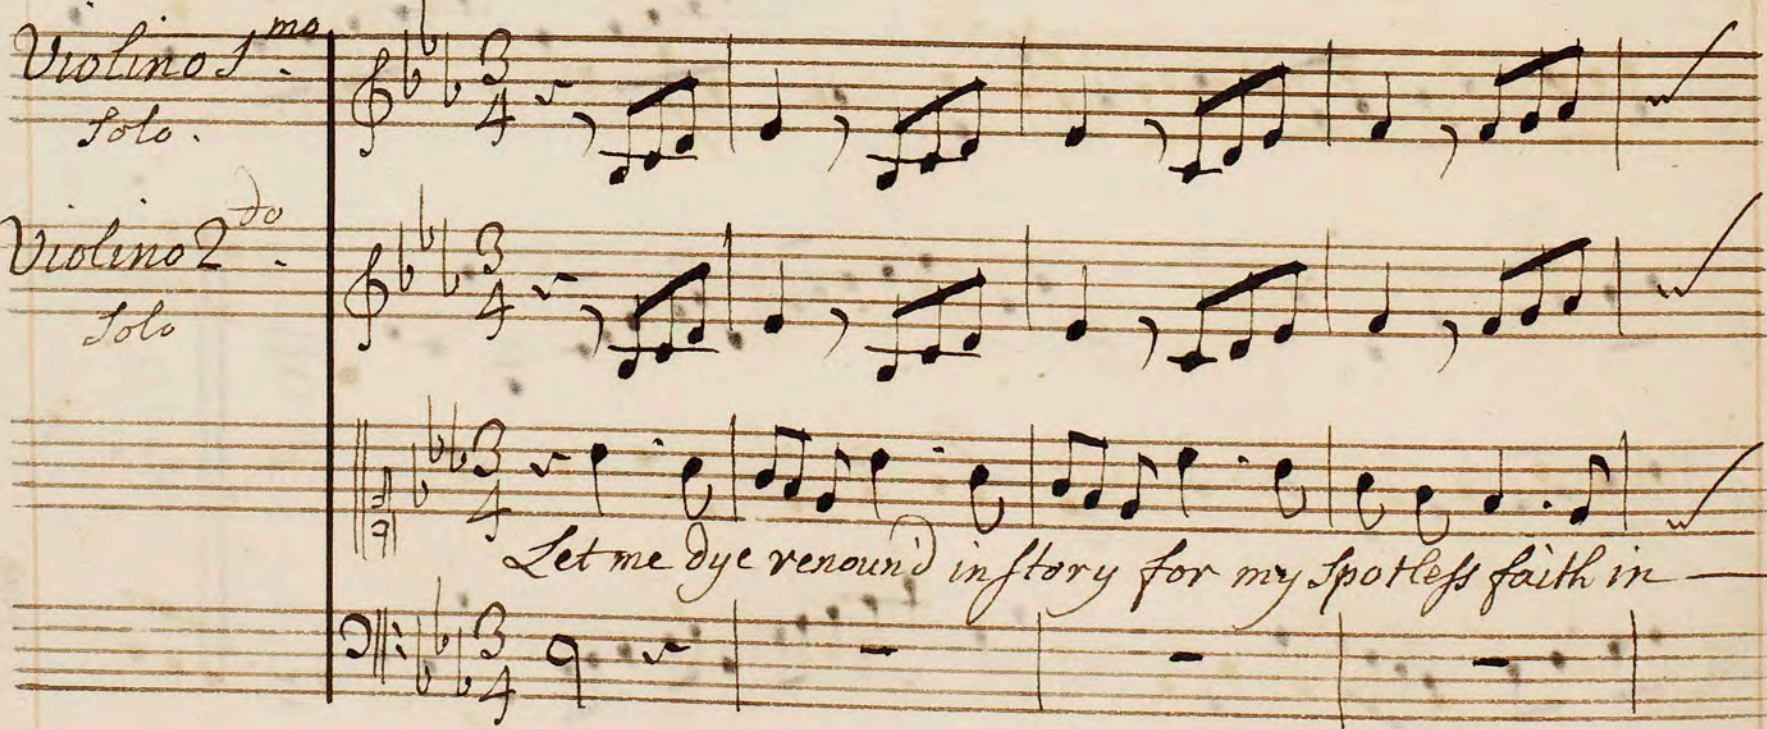 Violino 1mo.
Solo.
3
4
Violino 2do.
Solo
3
4
3
4
Let me dye renoun'd in ſtory for my Spotleſs faith in —
3
4